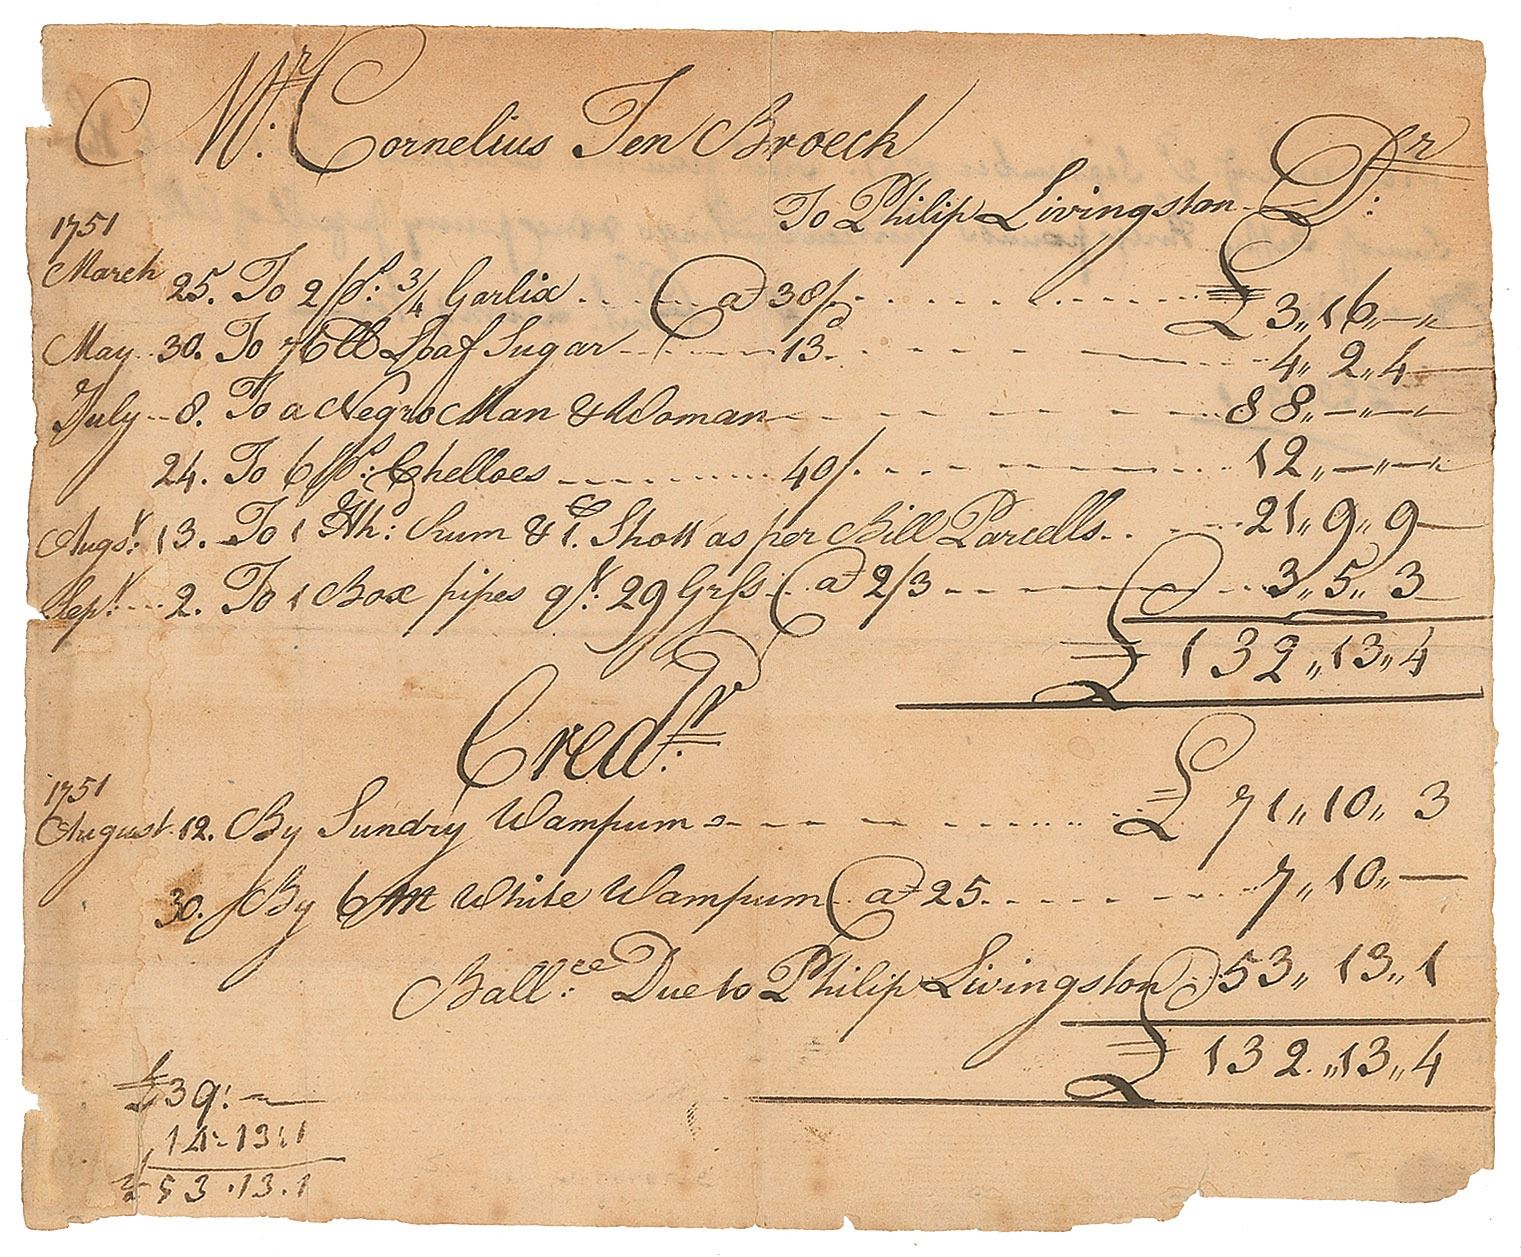 Mr. Cornelius Ten Broeck Dr:
To Philip Livingston
1751
March 25. To 2 ps: 3/4 Garlix @ 38/ £ 3,, 16,, — ,,
May 30. To 76 lb Loaf Sugar 13d 4,, 2,, 4
July 8. To a Negro Man & Woman 88,, — ,, —
24. To 6 ps: Chelloes 40/. 12,, — ,, —
Augst: 13. To 1 Hhd: Rum & 1 C. Shott as per Bill Parcells 21,, 9,, 9
Sept: 2. To 1 Box pipes qt: 29 Grss @ 2/3 3,, 5,, 3
£ 132,, 13,, 4
Credr:
1751
August 12. By Sundry Wampum £ 71,, 10,, 3
30. By 6 M White Wampum @ 25 7,, 10,, —
Ballce: Due to Philip Livingston 53,, 13,, 1
£ 132,, 13,, 4
£39: —
14: 13: 1
£ 53. 13. 1